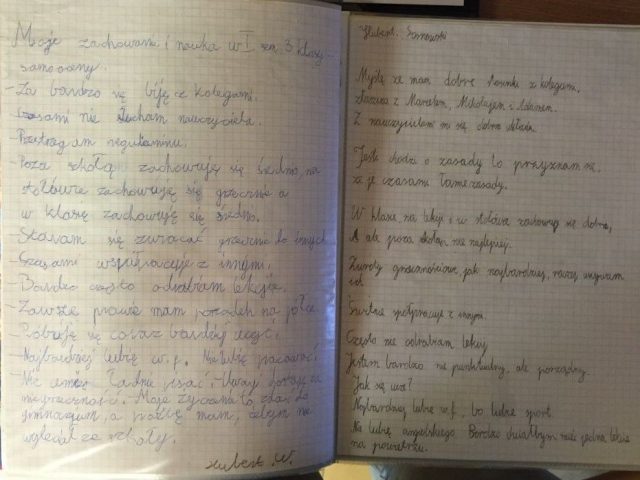 Moje zachowanie i nauka w I sem. 3 klasy-
samooceny.
- Za bardzo się biję z kolegami.
Czasami nie słucham nauczyciela.
- Przestrzegam regulaminu.
- Poza szkołą zachowuję się średnio, na
stołówce zachowuję się grzecznie a
w klasie zachowuję się średnio.
- Staram się zwracać grzecznie do innych
- Czasami współpracuję z innymi.
- Bardzo często odrabiam lekcje.
- Zawsze prawie mam porządek na półce.
- się coraz bardziej
- Najbardziej lubię w.f. Nie lubię pracować.
- Nie umiem ładnie pisać. Uwagi dostaję za
niegrzeczność. Moje życzenia to zdać do
gimnazjum, a prośbę mam, żebym nie
wyleciał ze szkoły.
Hubert .W.
Hubert Sosnowski
Myślę że mam dobre stosunki z kolegami,
z Marcelem, Mikołajem i Adamem.
Z nauczycielami mi się dobrze układa.
Jeśli chodzi o zasady to przyznam się,
że je czasami łamę zasady.
W klasie, na lekcji i w stołówce zachowuję się dobrze,
ale poza szkołą nie najlepiej.
Zwroty grzecznościowe, jak najbardziej, raczej używam
ich.
Świetnie spółpracuje z innym.
Często nie odrabiam lekcji
Jestem bardzo nie punktualny, ale porządny.
Jak się uczę?
Najbardziej lubię w.f., bo lubię sport.
Nie lubię angielskiego. Bardzo chciałbym mieć jedną lekcję
na powietrzu.